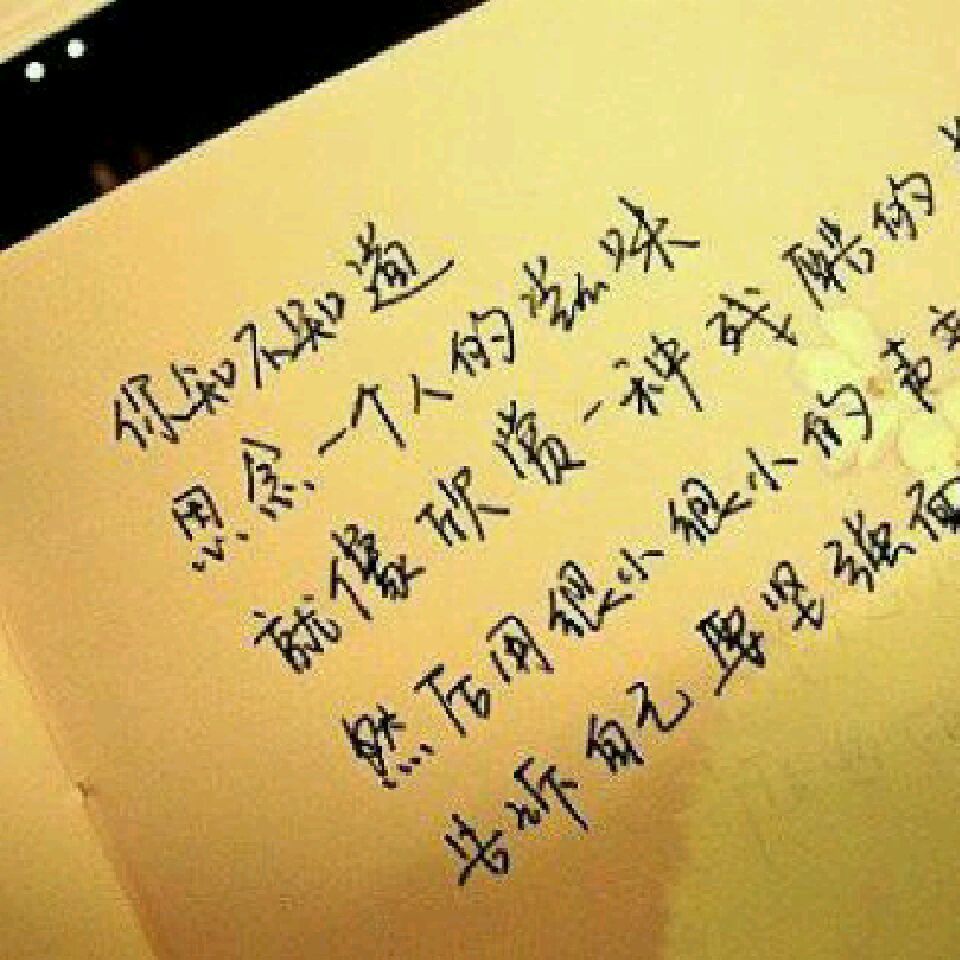 你知不知道
思念一个人的滋味
就像欣赏一种残酷的
然后用很小很小的声
告诉自己要坚强面